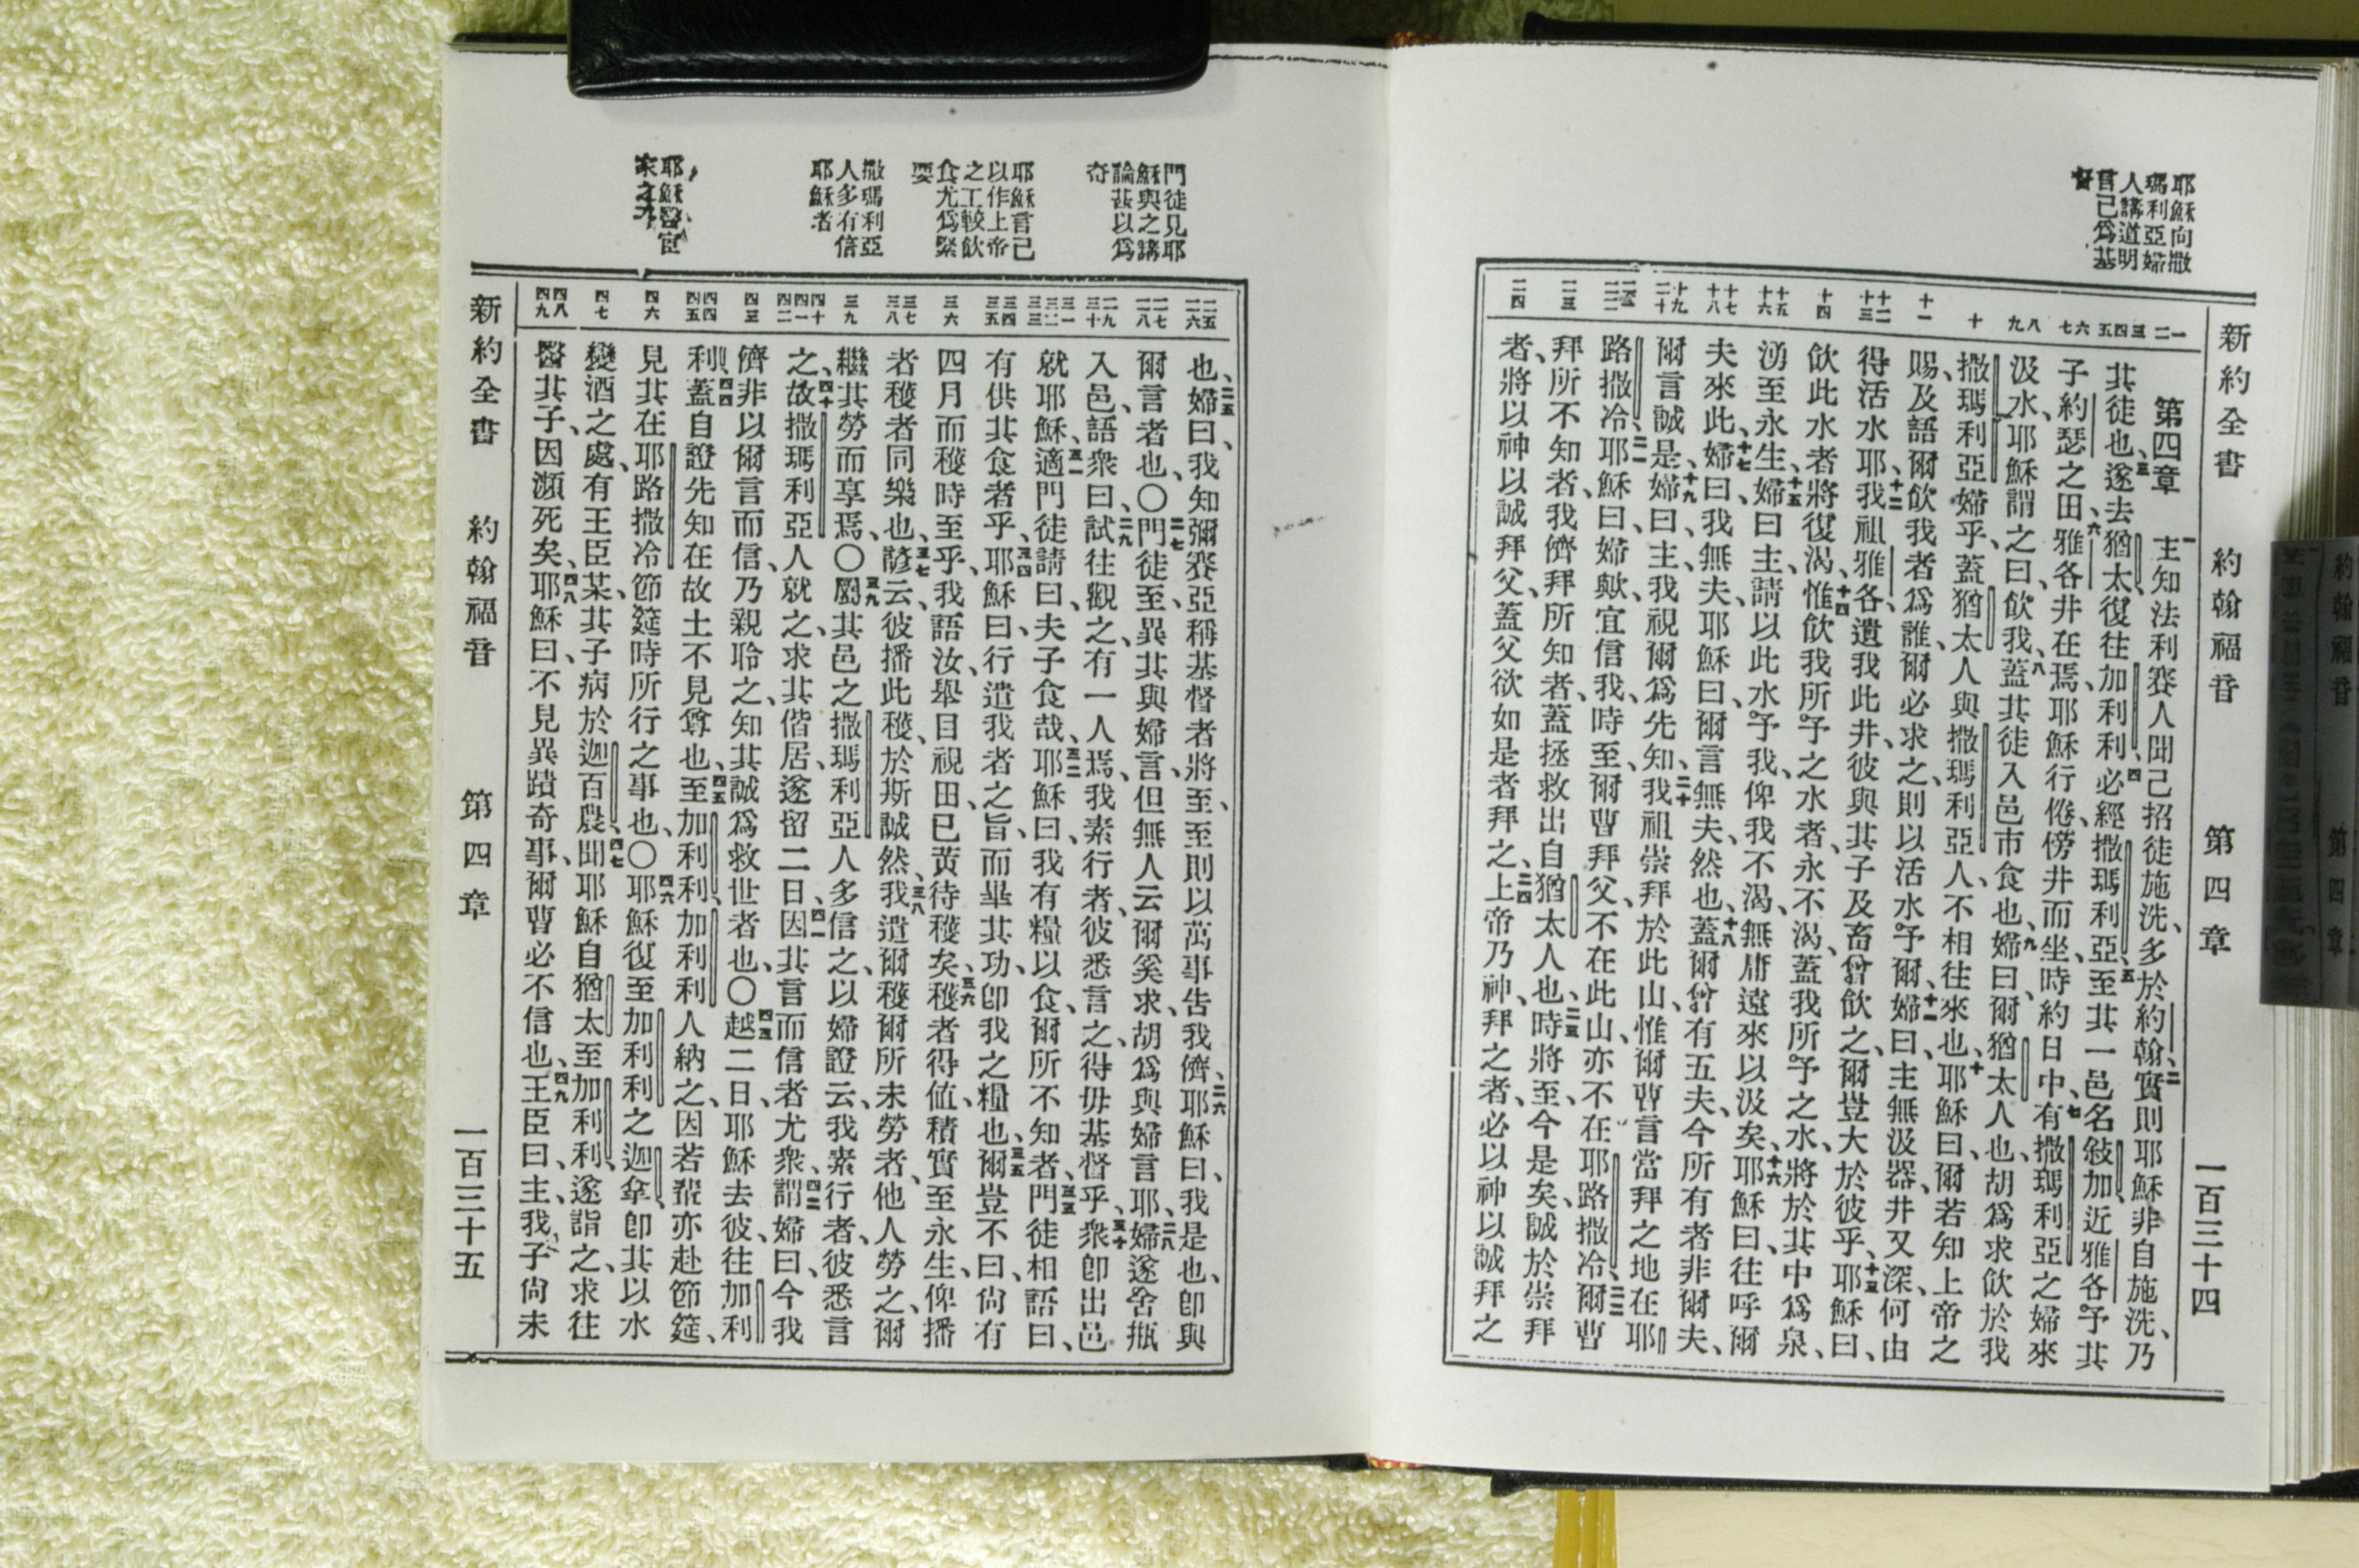 耶穌向撒
瑪利亞婦
人講道明
言己爲基
督
新約全書 約翰福音 第四章 一百三十四
一 二 三 四 五 六 七 八 九 十 十一 十二 十三 十四 十五 十六 十七 十八 十九 二十 二一 二二 二三 二四
第四章 一主知法利賽人聞己招徒施洗、多於約翰、二實則耶穌非自施洗、乃
其徒也、三遂去猶太、復往加利利、四必經撒瑪利亞、五至其一邑名敍加、近雅各予其
子約瑟之田、六雅各井在焉、耶穌行倦、傍井而坐、時約日中、七有撒瑪利亞之婦來
汲水、耶穌謂之曰、飲我、八蓋其徒入邑市食也、九婦曰、爾猶太人也、胡爲求飲於我
撒瑪利亞婦乎、蓋猶太人與撒瑪利亞人不相往來也、十耶穌曰、爾若知上帝之
賜、及語爾飲我者爲誰、爾必求之、則以活水予爾、十一婦曰、主無汲器、井又深、何由
得活水耶、十二我祖雅各遺我此井、彼與其子及畜曾飲之、爾豈大於彼乎、十三耶穌曰、
飲此水者將復渴、十四惟飲我所予之水者、永不渴、蓋我所予之水、將於其中爲泉、
湧至永生、十五婦曰、主、請以此水予我、俾我不渴、無庸遠來以汲矣、十六耶穌曰、往呼爾
夫來此、十七婦曰、我無夫、耶穌曰、爾言無夫、然也、十八蓋爾曾有五夫、今所有者非爾夫、
爾言誠是、十九婦曰、主、我視爾爲先知、二十我祖崇拜於此山、惟爾曹言當拜之地在耶
路撒冷、二一耶穌曰、婦歟、宜信我、時至、爾曹拜父、不在此山、亦不在耶路撒冷、二二爾曹
拜所不知者、我儕拜所知者、蓋拯救出自猶太人也、二三時將至、今是矣、誠於崇拜
者、將以神以誠拜父、蓋父欲如是者拜之、二四上帝乃神、拜之者、必以神以誠拜之
門徒見耶
穌與之講
論甚以爲
奇
耶穌言己
以作上帝
之工較飲
食尤爲緊
要
撒瑪利亞
人多有信
耶穌者
二五 二六 二七 二八 二九 三十 三一 三二 三三 三四 三五 三六 三七 三八 三九 四十 四一 四二 四三 四四 四五 四六 四七 四八 四九
也、二五婦曰、我知彌賽亞稱基督者將至、至則以萬事告我儕、二六耶穌曰、我是也、卽與
爾言者也、〇二七門徒至、異其與婦言、但無人云、爾奚求、胡爲與婦言耶、二八婦遂舍瓶
入邑、語衆曰、二九試往觀之、有一人焉、我素行者、彼悉言之、得毋基督乎、三十衆卽出邑
就耶穌、三一適門徒請曰、夫子食哉、三二耶穌曰、我有糧以食、爾所不知者、三三門徒相語曰、
有供其食者乎、三四耶穌曰、行遣我者之旨、而畢其功、卽我之糧也、三五爾豈不曰、尙有
四月而穫時至乎、我語汝、舉目視田、已黃待穫矣、三六穫者得値、積實至永生、俾播
者穫者同樂也、三七諺云、彼播此穫、於斯誠然、三八我遣爾穫爾所未勞者、他人勞之、爾
繼其勞而享焉、〇三九其邑之撒瑪利亞人多信之、以婦證云、我素行者、彼悉言
之、故四十撒瑪利亞人就之、求其偕居、遂留二日、四一因其言而信者尤衆、四二謂婦曰、今我
儕非以爾言而信、乃親聆之、知其誠爲救世者也、〇四三越二日、耶穌去彼、往加利
利、四四蓋自證先知在故土不見尊也、四五至加利利、加利利人納之、因若輩亦赴節筵、
見其在耶路撒冷節筵時所行之事也、〇四六耶穌復至加利利之迦拿、卽其以水
變酒之處、有王臣某、其子病於迦百農、四七聞耶穌自猶太至加利利、遂詣之、求往
醫其子、因瀕死矣、四八耶穌曰、不見異蹟奇事、爾曹必不信也、四九王臣曰、主、我子尙未
新約全書 約翰福音 第四章 一百三十五